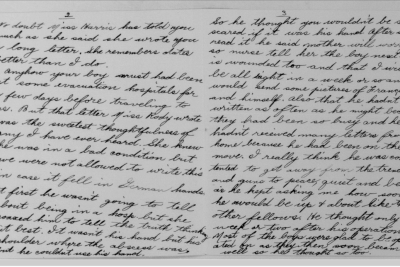 2
no doubt Miss Harris has told you
much as she said she wrote you
a long letter. She remembers dates
better than I do.
anyhow your boy must had been
in some evacuation hospitals for
a few days before traveling to
us. But that letter Miss Rody wrote
was the sweetest thoughtfulness of
any I have ever heard. She knew
he was in a bad condition but
we were not allowed to write this
in case it fell in German hands
at first he wasn't going to tell
about being in a hosp but she
coaxed him to tell the truth thinking
it best. It wasn't his hand but his
shoulder where the abscess was,
and he couldn't use his hand.
3
So he thought you wouldn't be so
scared if it was his hand after she
read it he said mother will worry
so nurse tell her the boy next
is wounded too and that I will
be all right in a week or so and
would send some pictures of France
and himself. also that he hadn't
written as often as he might but
they had been so busy and he
hadn't received many letters from
home because he had been on the
move. I really think he was con-
tented to get away from the trenches
and guns to peace, quiet and bed
as he kept asking me how soon
he would be up & about like the
other fellows. He thought only a
week or two after his operation
Most of the boys were glad to be
as they then soon
well so he thought so too.